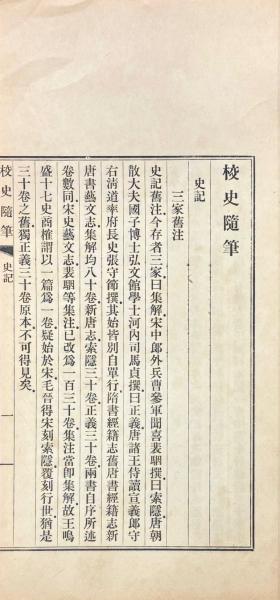 校史隨筆
史記
三家舊注
史記舊注今存者三家曰集解宋中郎外兵曹參軍聞喜裴駰撰曰索隱唐朝
散大夫國子博士弘文館學士河內司馬貞撰曰正義唐諸王侍讀宣義郎守
右清道率府長史張守節撰其始皆別自單行隋書經籍志舊唐書經籍志新
唐書藝文志集解均八十卷新唐志索隱三十卷正義三十卷兩書自序所述
卷數同宋史藝文志裴駰等集注已改爲一百三十卷集注當卽集解故王鳴
盛十七史商榷謂以一篇爲一卷疑始於宋毛晉得宋刻索隱覆刻行世猶是
三十卷之舊獨正義三十卷原本不可得見矣
校史隨筆
史記
一